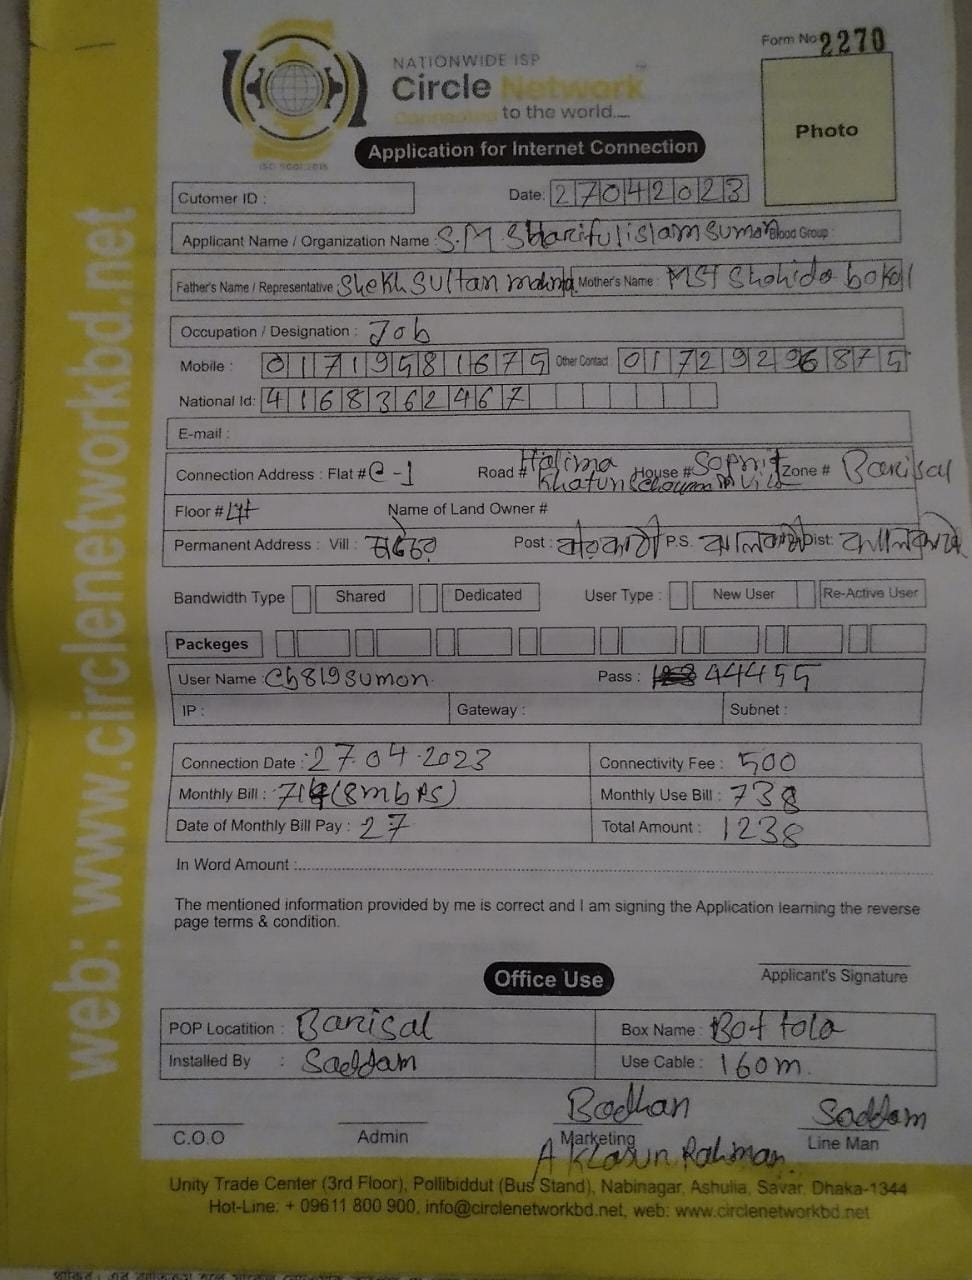 Form No 2270
NATIONWIDE ISP
Circle Network
Connected to the world....
ISO 9001:2015
Photo
Application for Internet Connection
Cutomer ID : Date: 27042023
Applicant Name / Organization Name : S.M Sharifulislam sumon Blood Group :
Father's Name / Representative Shekh Sultan Mother's Name : MST Shohida
Occupation / Designation : Job
Mobile : 01719581675 Other Contact : 01729296875
National Id: 4168362467
E-mail :
Connection Address : Flat # C-1 Road # Halima Khatun House # Zone # Barisal
Floor # Name of Land Owner #
Permanent Address : Vill : Post : P.S. Dist:
Bandwidth Type Shared Dedicated User Type : New User Re-Active User
Packeges
User Name : Cb819sumon Pass : 44455
IP : Gateway : Subnet :
Connection Date : 27.04.2023 Connectivity Fee : 500
Monthly Bill : (8mbps) Monthly Use Bill : 738
Date of Monthly Bill Pay : 27 Total Amount : 1238
In Word Amount :
The mentioned information provided by me is correct and I am signing the Application learning the reverse
page terms & condition.
Applicant's Signature
Office Use
POP Locatition : Barisal Box Name : Bottola
Installed By : Saddam Use Cable : 160m.
Bodhan Saddam
C.O.O Admin Marketing Line Man
Rahman
Unity Trade Center (3rd Floor), Pollibiddut (Bus Stand), Nabinagar, Ashulia, Savar, Dhaka-1344
Hot-Line: + 09611 800 900, info@circlenetworkbd.net, web: www.circlenetworkbd.net
web: www.circlenetworkbd.net